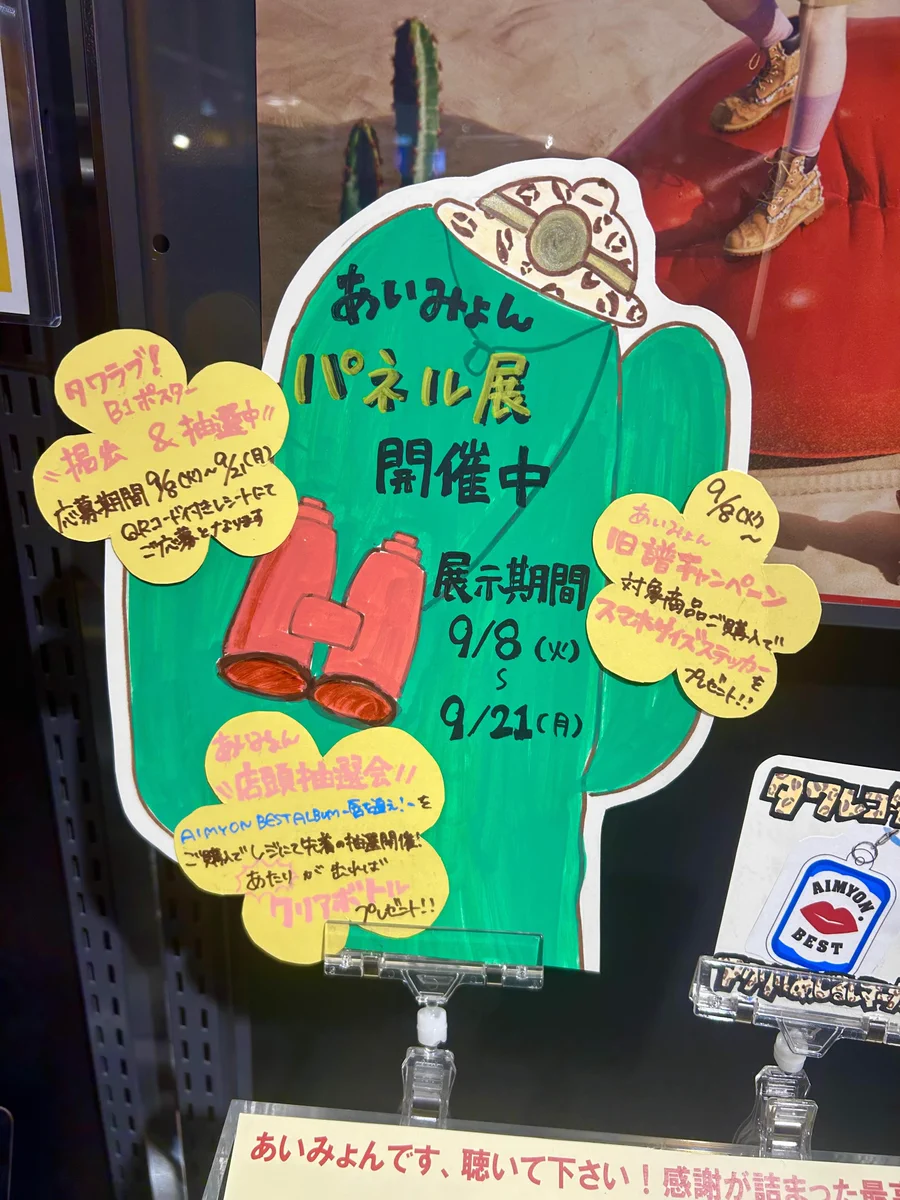 あいみょん
パネル展
開催中
展示期間
9/8(火)
〜
9/21(月)
タワラブ!
B1ポスター
掲出 & 抽選中!!
応募期間 9/8(火)〜9/21(月)
QRコード付きレシートにて
ご応募となります
9/8(火)
〜
あいみょん
旧譜キャンペーン
対象商品ご購入で
スマホサイズステッカーを
プレゼント!!
あいみょん
店頭抽選会!!
AIMYON BEST ALBUM -唇を追え!-を
ご購入でレジにて先着の抽選開催!
あたりが出れば
クリアボトル
プレゼント!!
タワレコ
AIMYON.
BEST
あいみょんです、聴いて下さい!感謝が詰まった最